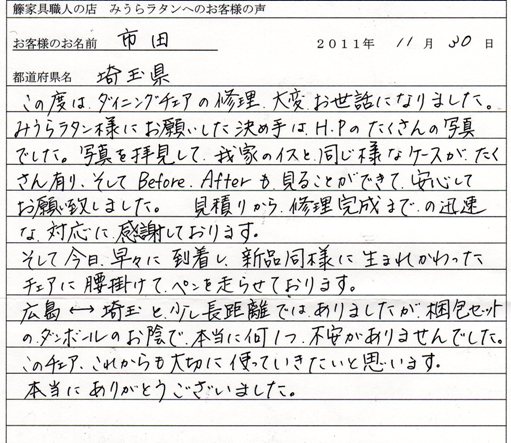 籐家具職人の店　みうらラタンへのお客様の声
お客様のお名前　市田　2011年 11月 30日
都道府県名　埼玉県
この度は、ダイニングチェアの修理、大変、お世話になりました。
みうらラタン様にお願いした決め手は、H.Pのたくさんの写真
でした。写真を拝見して、我家のイスと、同じ様なケースが、たく
さん有り、そしてBefore、Afterも、見ることができて、安心して
お願い致しました。　見積りから、修理完成まで、の迅速
な、対応に、感謝しております。
そして今日、早々に、到着し、新品同様に、生まれかわった
チェアに、腰掛けて、ペンを走らせております。
広島 ↔ 埼玉と、少し長距離では、ありましたが、梱包セット
の、ダンボールのお陰で、本当に何1つ、不安がありませんでした。
このチェア、これからも大切に、使っていきたいと思います。
本当にありがとうございました。